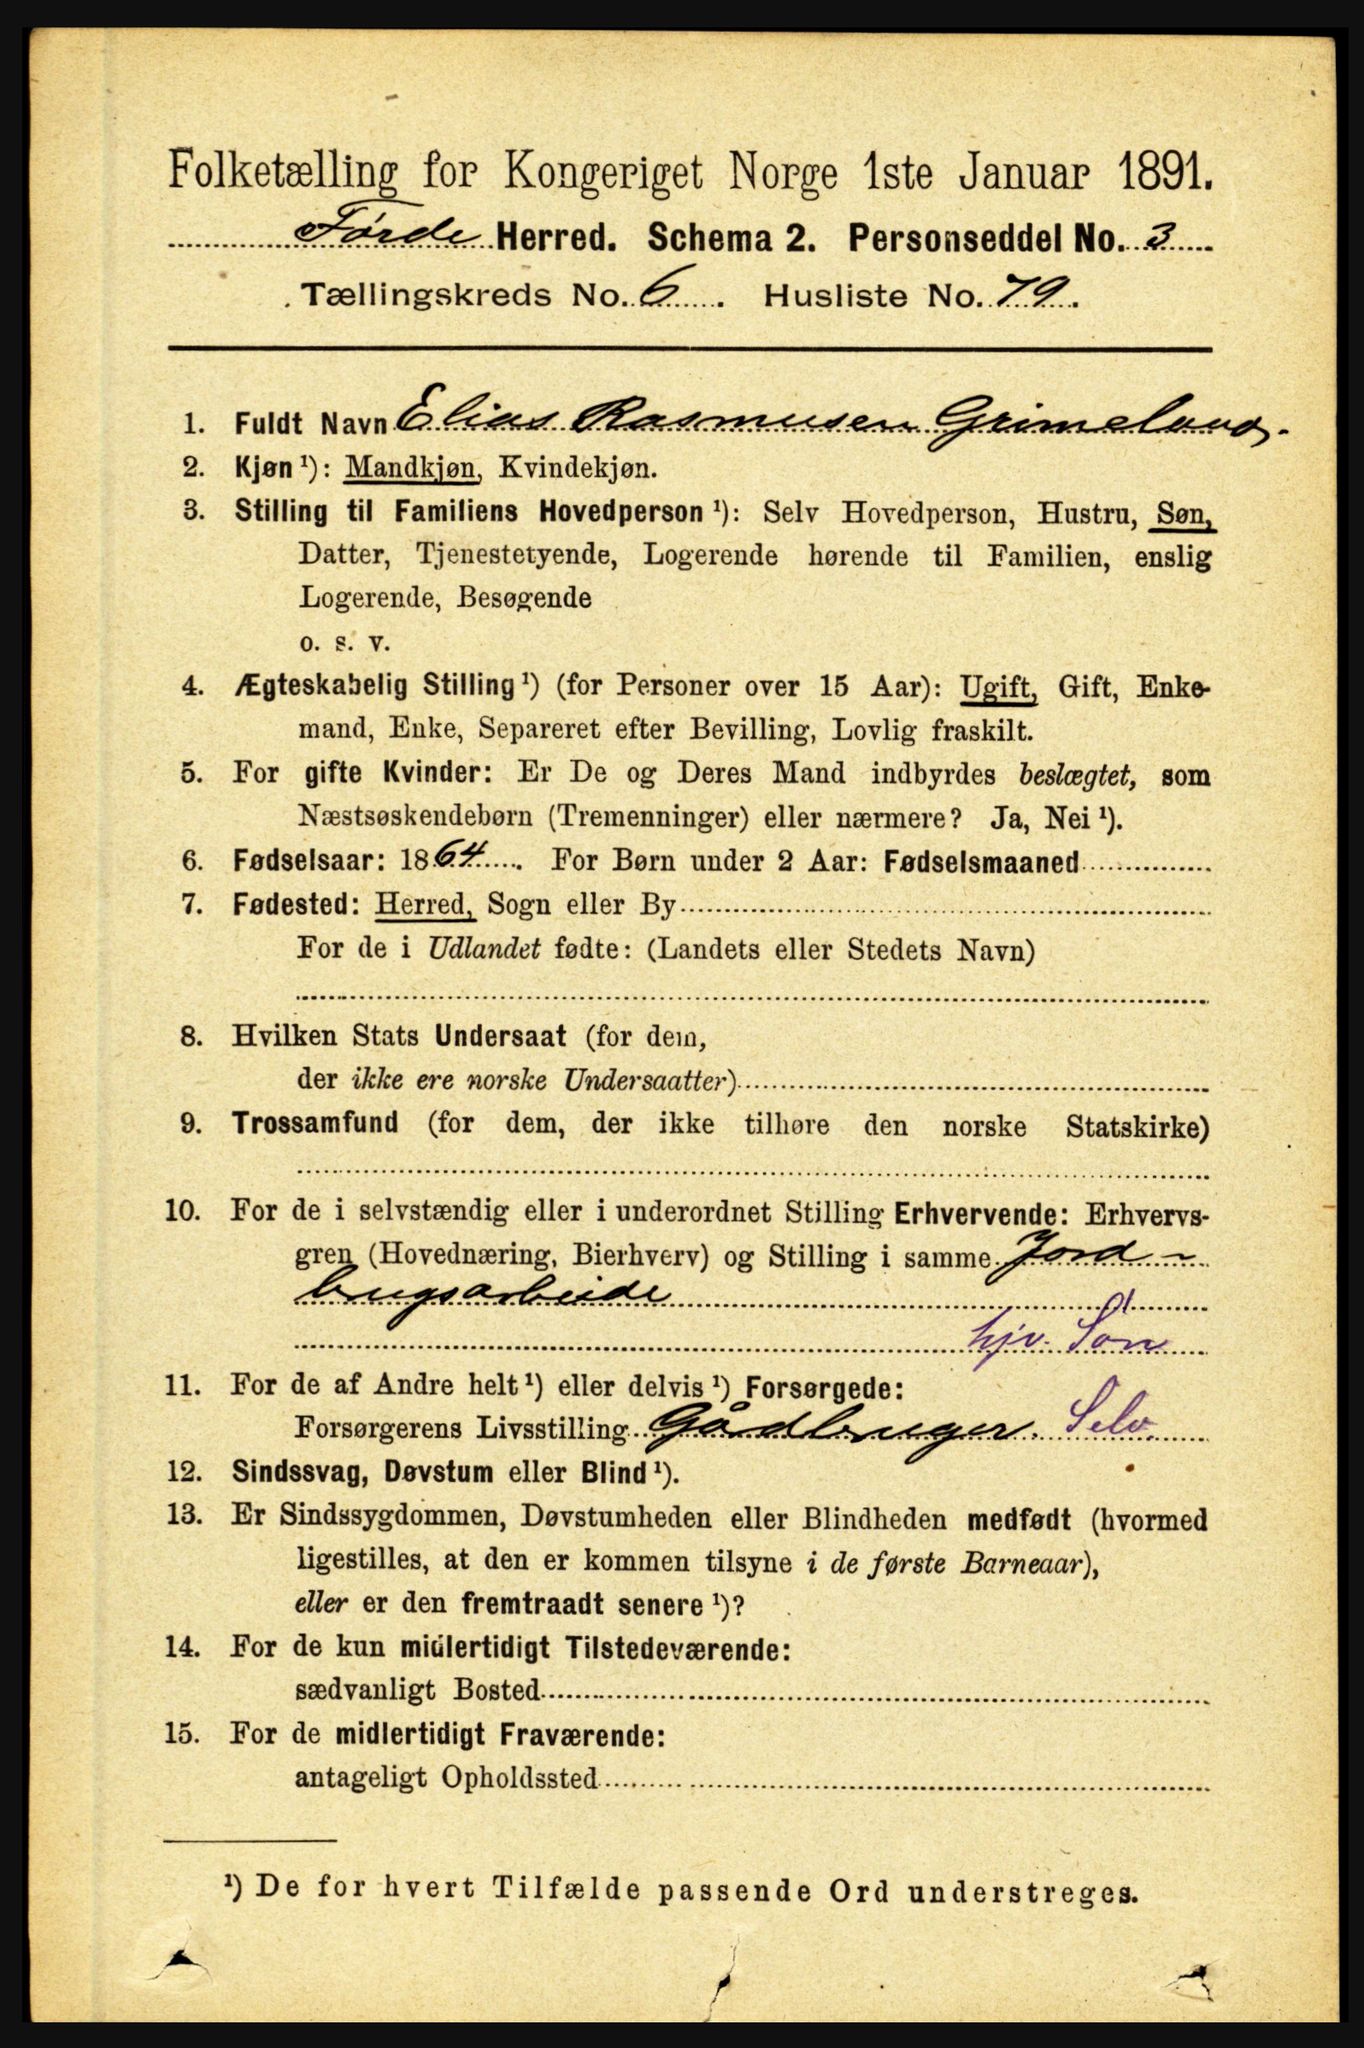 Folketælling for Kongeriget Norge 1ste Januar 1891.
Førde Herred. Schema 2. Personseddel No. 3
Tællingskreds No. 6. Husliste No. 79.
1. Fuldt Navn Elias Rasmusen Grimeland.
2. Kjøn ¹): Mandkjøn, Kvindekjøn.
3. Stilling til Familiens Hovedperson ¹): Selv Hovedperson, Hustru, Søn,
Datter, Tjenestetyende, Logerende hørende til Familien, enslig
Logerende, Besøgende
o. s. v.
4. Ægteskabelig Stilling ¹) (for Personer over 15 Aar): Ugift, Gift, Enke-
mand, Enke, Separeret efter Bevilling, Lovlig fraskilt.
5. For gifte Kvinder: Er De og Deres Mand indbyrdes beslægtet, som
Næstsøskendebørn (Tremenninger) eller nærmere? Ja, Nei ¹).
6. Fødselsaar: 1864. For Børn under 2 Aar: Fødselsmaaned
7. Fødested: Herred, Sogn eller By
For de i Udlandet fødte: (Landets eller Stedets Navn)
8. Hvilken Stats Undersaat (for dem,
der ikke ere norske Undersaatter)
9. Trossamfund (for dem, der ikke tilhøre den norske Statskirke)
10. For de i selvstændig eller i underordnet Stilling Erhvervende: Erhvervs-
gren (Hovednæring, Bierhverv) og Stilling i samme Jord-
brugsarbeide
hjv. Søn
11. For de af Andre helt ¹) eller delvis ¹) Forsørgede:
Forsørgerens Livsstilling Gådbruger. Selv.
12. Sindssvag, Døvstum eller Blind ¹).
13. Er Sindssygdommen, Døvstumheden eller Blindheden medfødt (hvormed
ligestilles, at den er kommen tilsyne i de første Barneaar),
eller er den fremtraadt senere ¹)?
14. For de kun midlertidigt Tilstedeværende:
sædvanligt Bosted
15. For de midlertidigt Fraværende:
antageligt Opholdssted
¹) De for hvert Tilfælde passende Ord understreges.